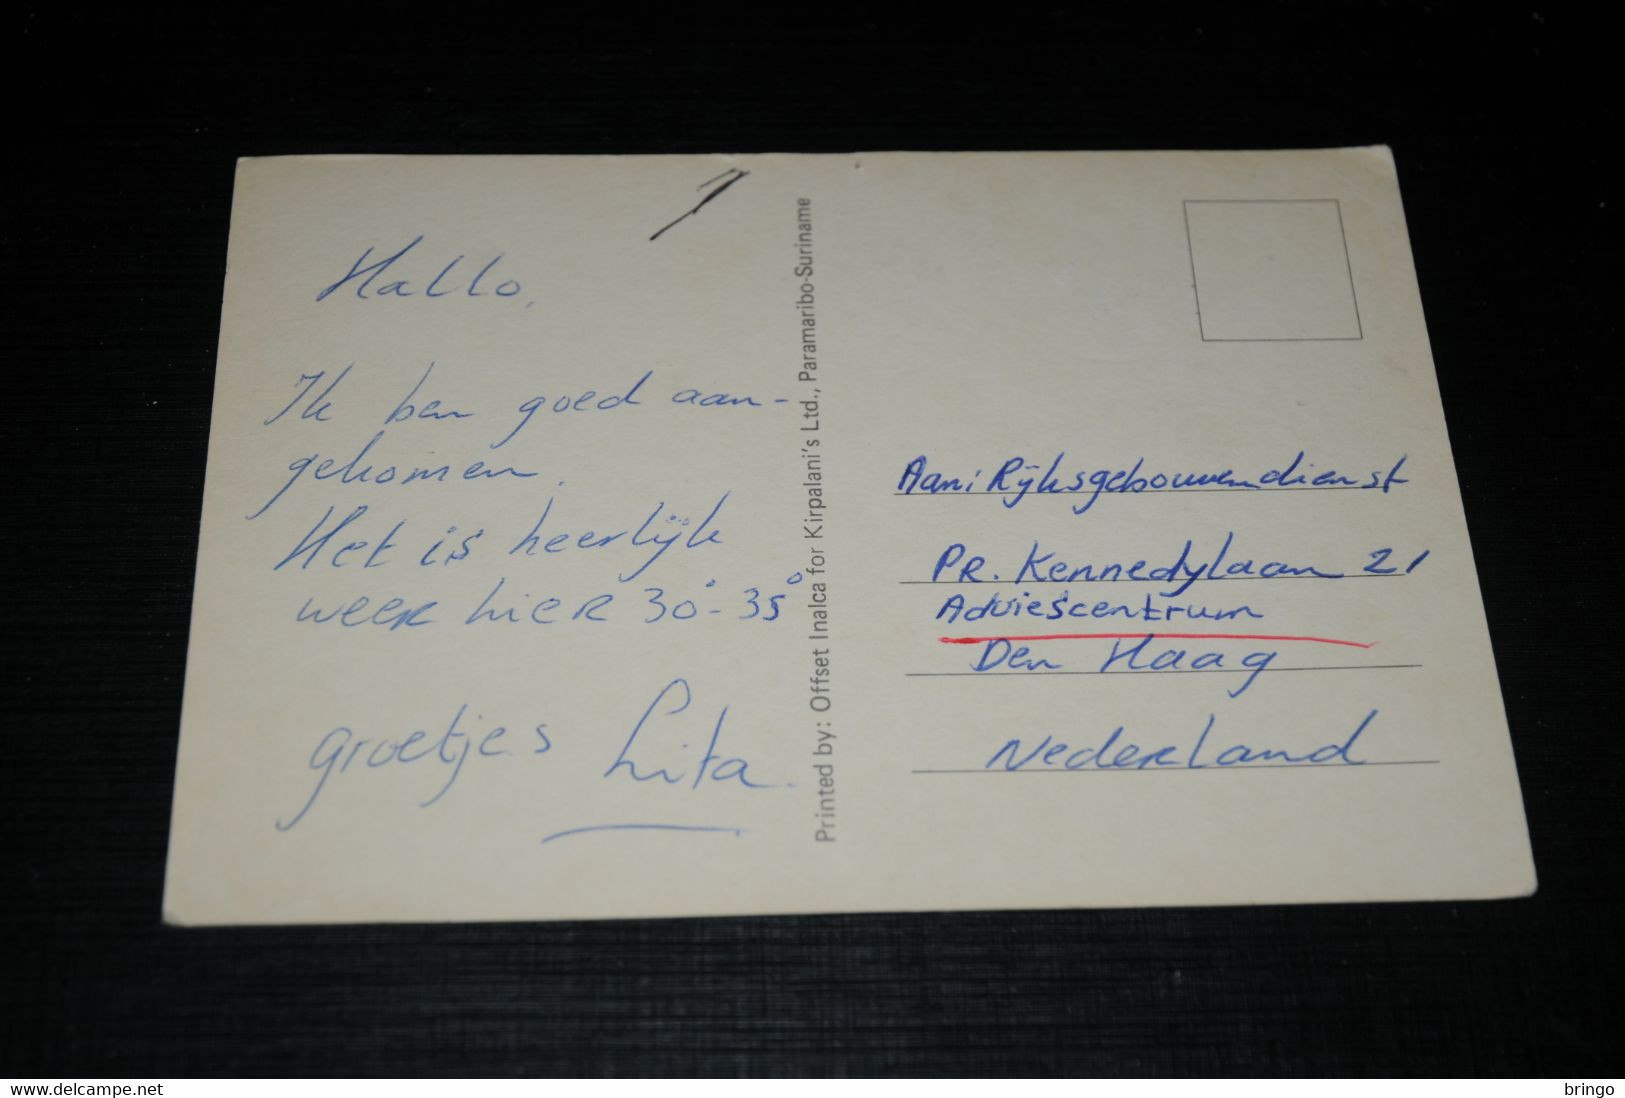 Hallo,
Ik ben goed aan-
gekomen.
Het is heerlijk
weer hier 30°-35°
groetjes Lita.
Printed by: Offset Inalca for Kirpalani's Ltd., Paramaribo-Suriname
Aan: Rijksgebouwendienst
Pr. Kennedylaan 21
Adviescentrum
Den Haag
Nederland
www.delcampe.net
bringo